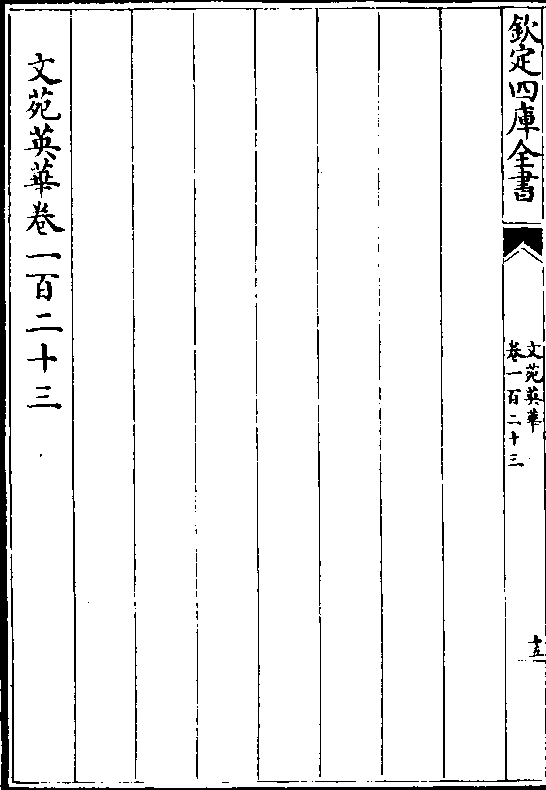 欽定四庫全書
文苑英華
卷一百二十三
十五
文苑英華卷一百二十三